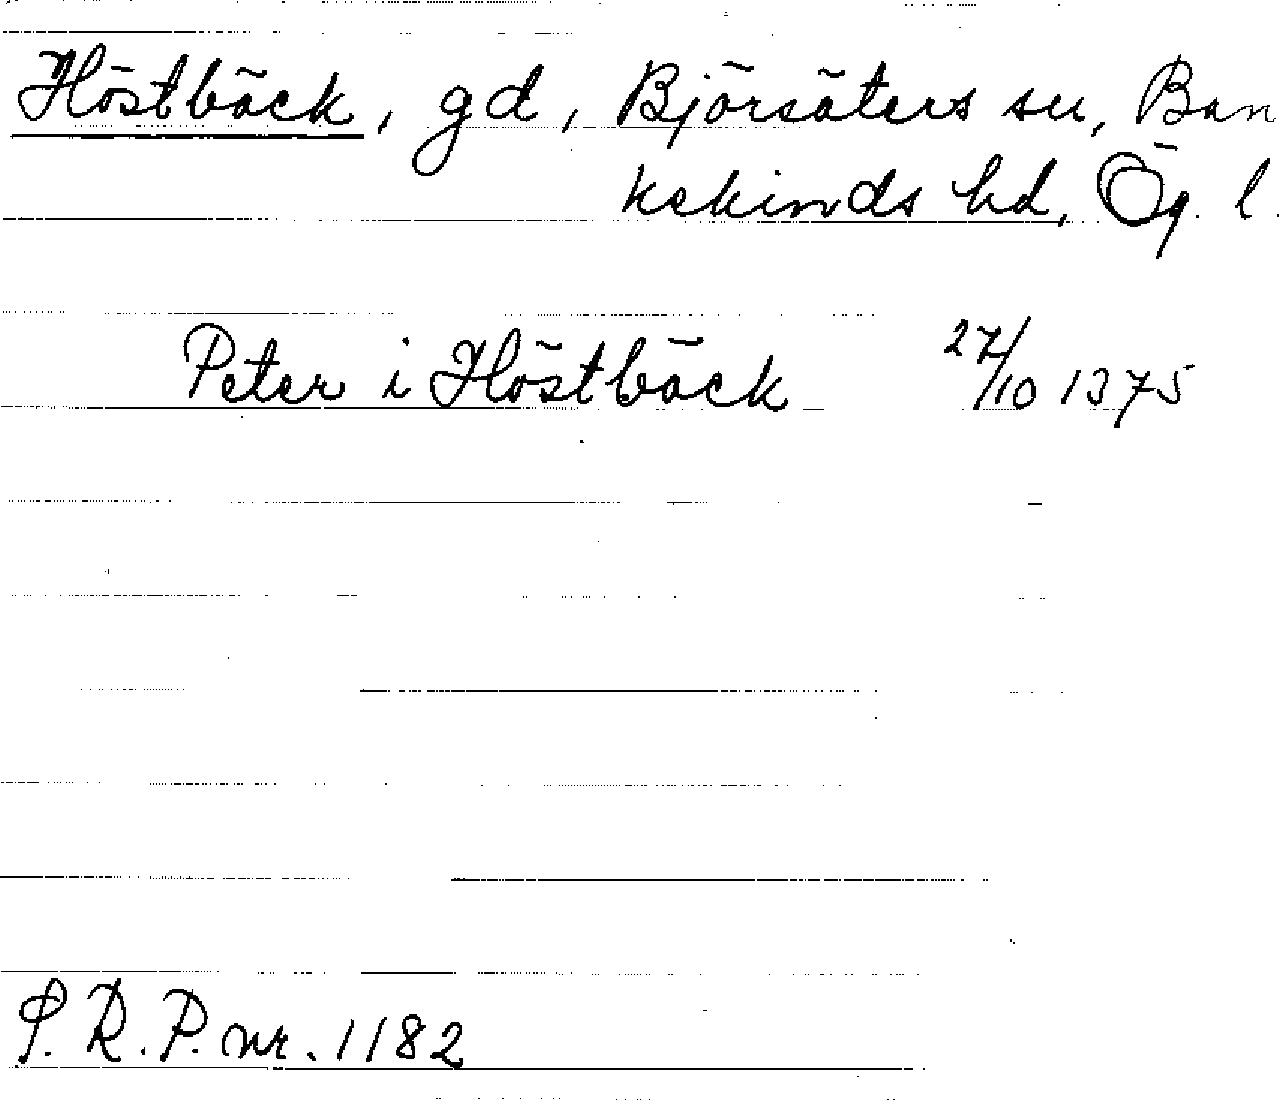 Höstbäck, gd, Björsäters sn, Ban
kekinds hd, Ög. l.
Peter i Höstbäck 27/10 1375
S. R. P. nr. 1182